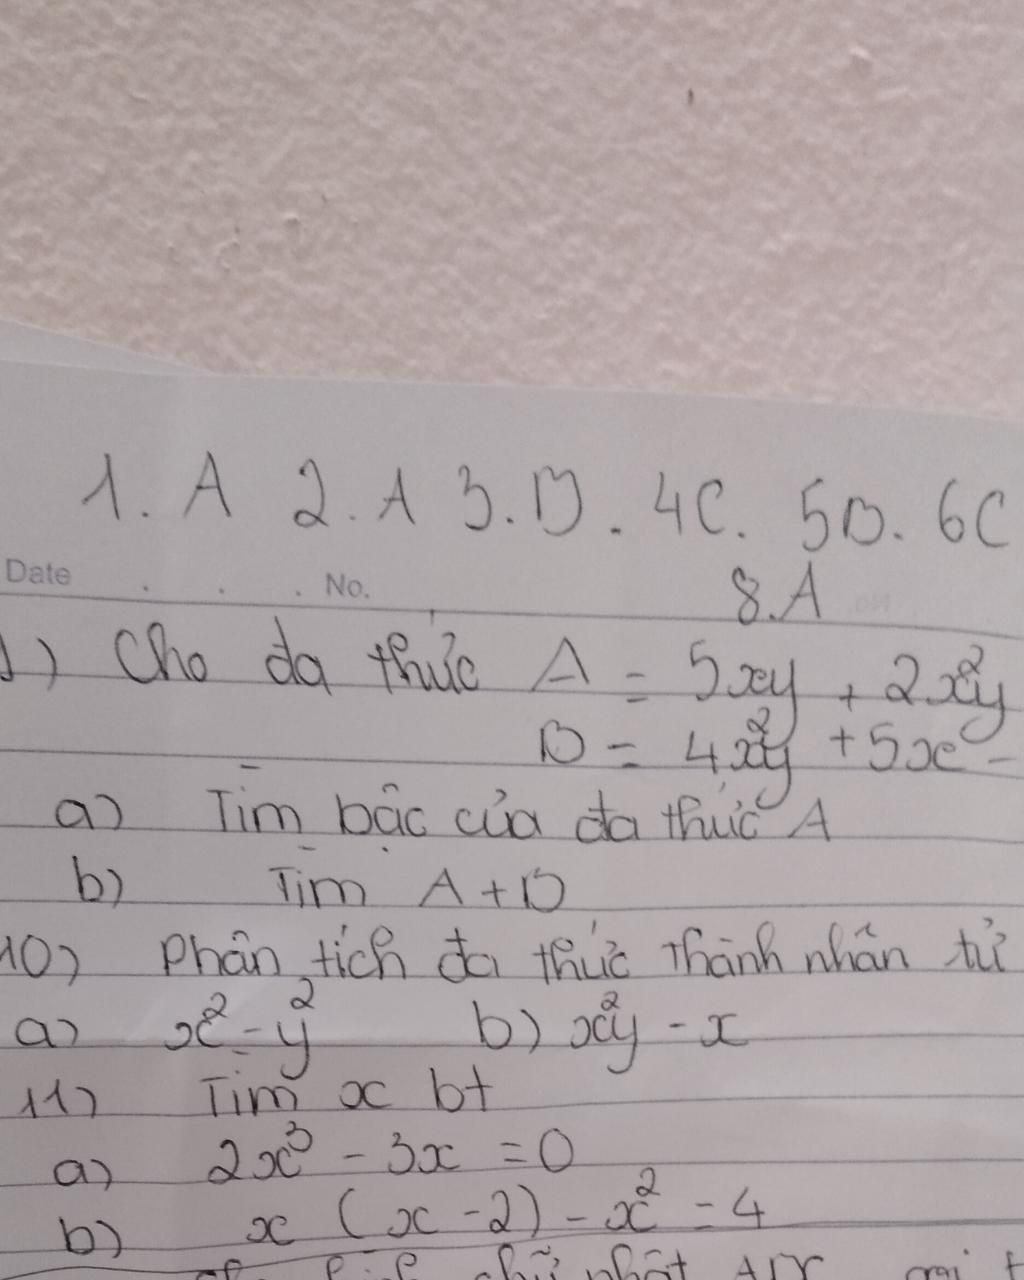 1. A 2. A 3. D. 4C. 5D. 6C
8. A
Date . . . No.
) Cho đa thức A = 5xy + 2x²y
D = 4x²y + 5x -
a) Tìm bậc của đa thức A
b) Tìm A + D
10) Phân tích đa thức thành nhân tử
a) x² - y² b) x²y - x
11) Tìm x bt
a) 2x³ - 3x = 0
b) x (x - 2) - x² = 4
chữ nhật